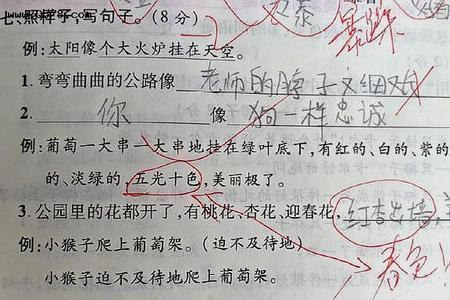 七、照样子,写句子。(8分)
例:太阳像个大火炉挂在天空。
1. 弯弯曲曲的公路像 老师的脖子又细又
2. 你 像 狗一样忠诚
例:葡萄一大串一大串地挂在绿叶底下,有红的、白的、紫的
的、淡绿的,五光十色,美丽极了。
3. 公园里的花都开了,有桃花、杏花、迎春花,红杏出墙,
例:小猴子爬上葡萄架。(迫不及待地)
春色!
小猴子迫不及待地爬上葡萄架。